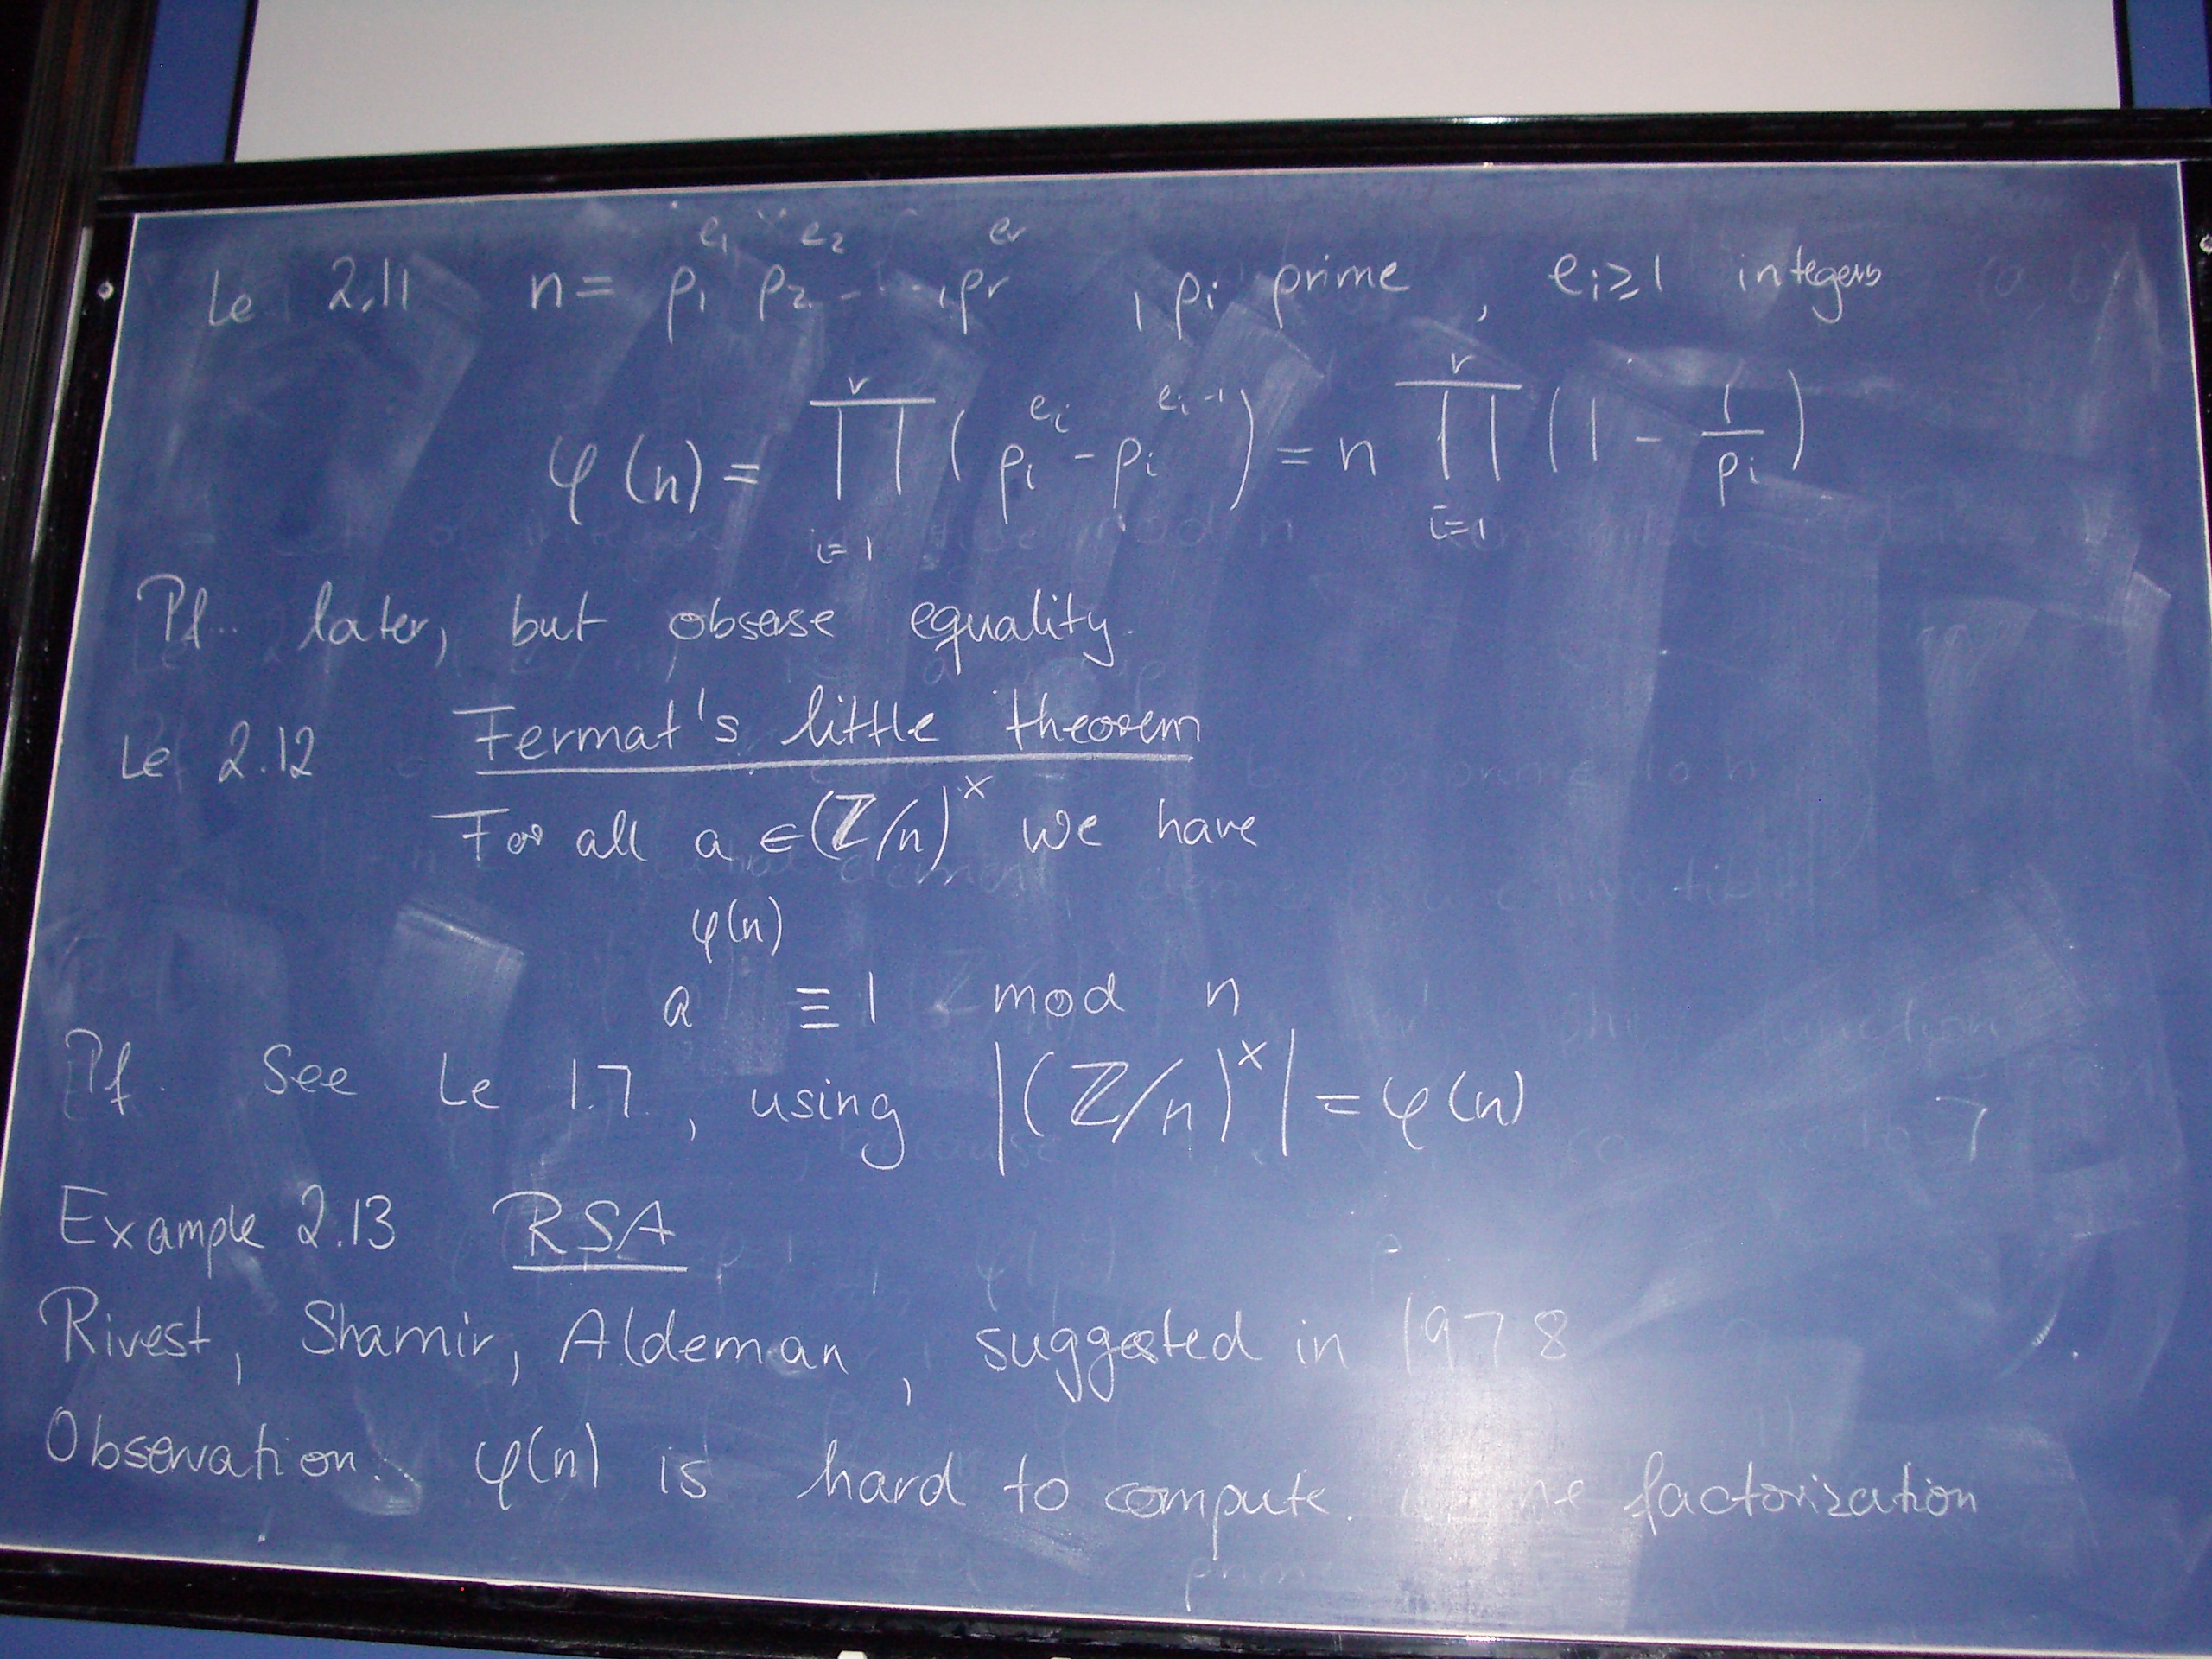 Le 2.11 n = p₁^e₁ p₂^e₂ - - - pᵣ^eᵣ , pᵢ prime , eᵢ ≥ 1 integers
φ(n) = ∏_{i=1}^{r} (pᵢ^eᵢ - pᵢ^{eᵢ-1}) = n ∏_{i=1}^{r} (1 - 1/pᵢ)
Pf. later, but observe equality.
Le 2.12 Fermat's little theorem
For all a ∈ (ℤ/n)^× we have
a^φ(n) ≡ 1 mod n
Pf. See Le 1.7, using |(ℤ/n)^×| = φ(n)
Example 2.13 RSA
Rivest, Shamir, Aldeman, suggested in 1978
Observation: φ(n) is hard to compute. factorization